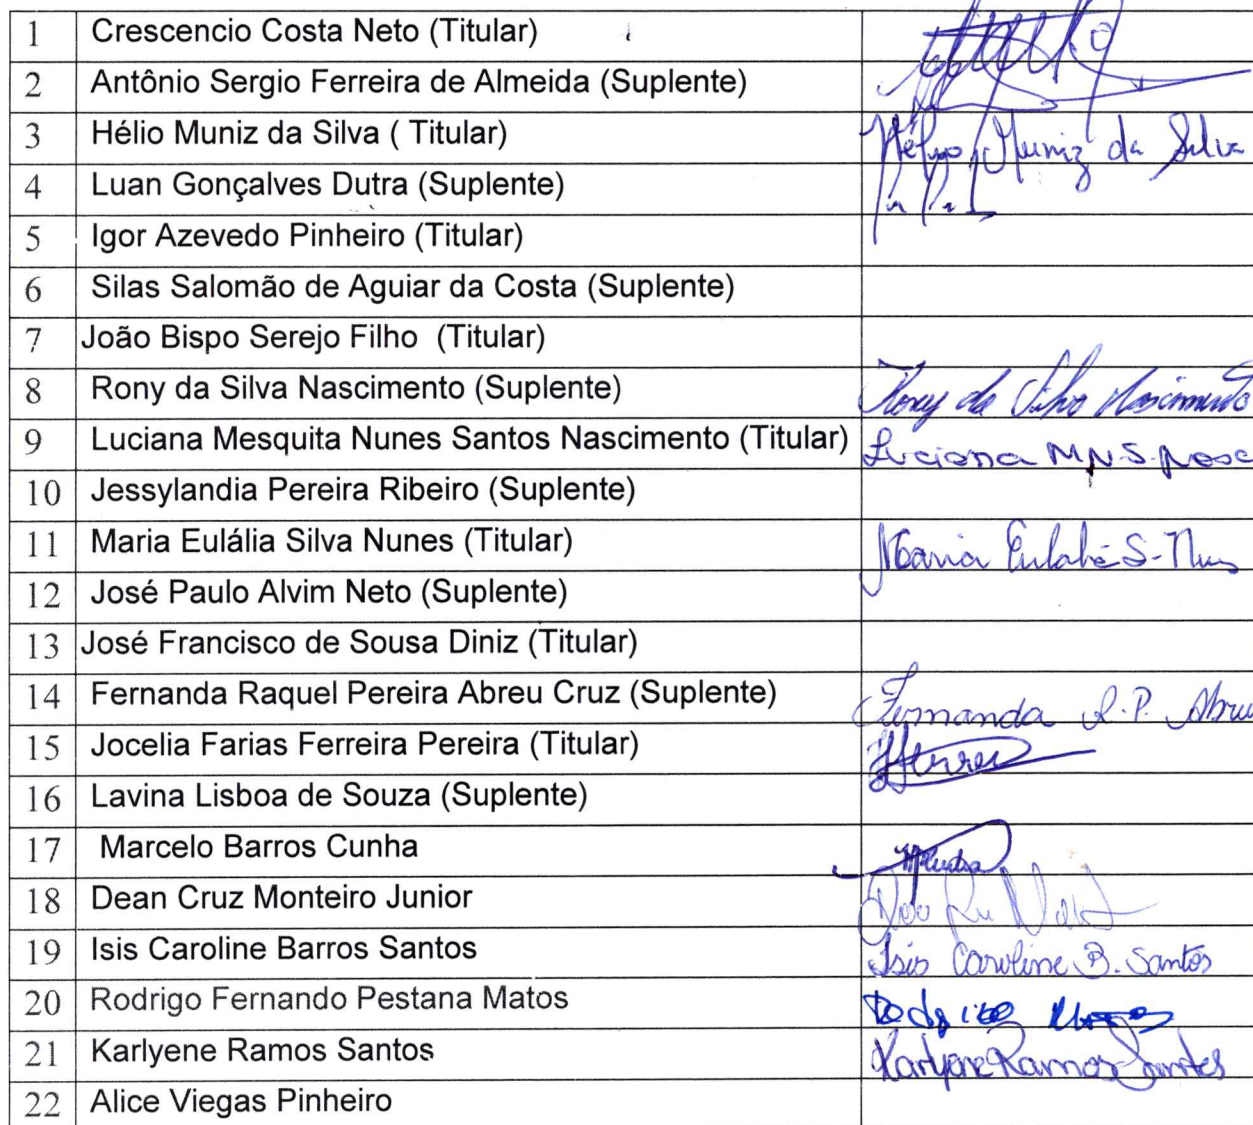 1 Crescencio Costa Neto (Titular)
2 Antônio Sergio Ferreira de Almeida (Suplente)
3 Hélio Muniz da Silva ( Titular) Hélyo Muniz da Silva
4 Luan Gonçalves Dutra (Suplente)
5 Igor Azevedo Pinheiro (Titular)
6 Silas Salomão de Aguiar da Costa (Suplente)
7 João Bispo Serejo Filho (Titular)
8 Rony da Silva Nascimento (Suplente) Rony da Silva Nascimento
9 Luciana Mesquita Nunes Santos Nascimento (Titular) Luciana M.N.S. Nasc
10 Jessylandia Pereira Ribeiro (Suplente)
11 Maria Eulália Silva Nunes (Titular) Maria Eulália S.
12 José Paulo Alvim Neto (Suplente)
13 José Francisco de Sousa Diniz (Titular)
14 Fernanda Raquel Pereira Abreu Cruz (Suplente) Fernanda R.P. Abreu
15 Jocelia Farias Ferreira Pereira (Titular)
16 Lavina Lisboa de Souza (Suplente)
17 Marcelo Barros Cunha
18 Dean Cruz Monteiro Junior
19 Isis Caroline Barros Santos Isis Caroline B. Santos
20 Rodrigo Fernando Pestana Matos Rodrigo
21 Karlyene Ramos Santos Karlyene Ramos Santos
22 Alice Viegas Pinheiro